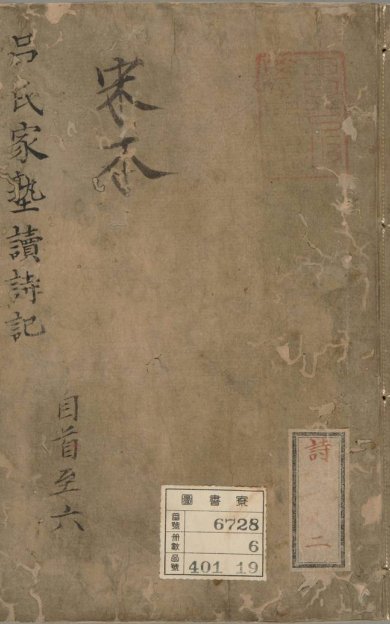 宋本
呂氏家塾讀詩記
自首至六
詩
二
圖書寮
番號 6728
冊數 6
函號 401 19